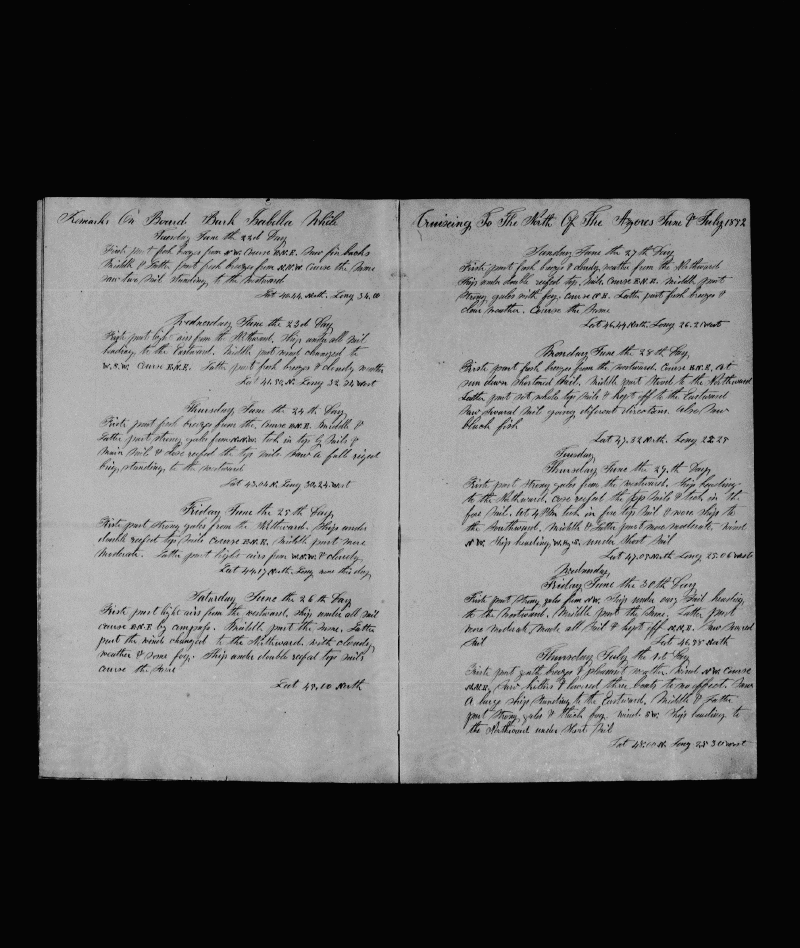 Remarks On Board Bark Isabella White
Tuesday June the 22d Day
Firste part fresh breezes from N.W. Course E.N.E. Saw fin backs
Middle & Latter part fresh breezes from N.N.W. Course the Same
Saw two Sail Standing to the Westward
Lat 40.44 North. Long 34.00
Wednesday June the 23d Day
Firste part light airs from the Northward. Ship under all Sail
heading to the Eastward. Middle part wind changed to
W.S.W. Course E.N.E. Latter part fresh breezes & cloudy weather
Lat 41.50 N. Long 32.24 West
Thursday June the 24 th Day
Firste part fresh breezes from the Course E.N.E. Middle &
Latter part strong gales from N.N.W. took in top G Sails &
Main Sail & close reefed the top Sails Saw a full riged
brig, standing to the westward
Lat 43.04 N. Long 30.24 West
Friday June the 25 th Day
Firste part Strong gales from the Northward. Ship under
double reefed top Sails Course E.N.E. Middle part more
moderate. Latter part light airs from W.N.W. & cloudy,
Lat 44.17 North. Long none this day
Saturday June the 26 th Day
Firste part light airs from the westward, Ship under all Sail
course E.N.E. by compass. Middle part the Same. Latter
part the winds changed to the Northward with cloudy
weather & Some fog. Ship under double reefed top Sails
course the Same
Lat 45.10 North
Cruiseing To The North Of The Azores June & July 1872
Sunday June the 27 th Day
Firste part fresh breezes & cloudy weather from the Northward
Ship under double reefed top Sails Course E.N.E. Middle part
Strong gales with fog. Course N.E. Latter part fresh breezes &
clear weather. Course the Same
Lat 46.44 North. Long 26.21 West
Monday June the 28 th Day
Firste part fresh breezes from the westward. Course E.N.E. At
sun down Shortened Sail. Middle part Stood to the Northward
Latter part set whole top Sails & kept off to the Eastward
Saw Several Sail going diferent directions. also Saw
black fish
Lat 47.32 North Long 22 25
Tuesday
Thursday June the 29 th Day
Firste part Strong gales from the westward. Ship heading
to the Northward. close reefed the top Sails & took in the
fore Sail. At 4 PM took in fore top Sail & wore Ship to
the Southward. Middle & Latter part more moderate. wind
N.W. Ship heading W.by S. under Short Sail
Lat 47.05 North Long 25.06 West
Wednesday
Friday June the 30th Day
Firste part Strong gales from N.W. Ship under easy Sail heading
to the Westward. Middle part the Same. Latter part
more moderate, made all Sail & kept off N.N.E. Saw Several
Sail Lat 46.58 North
Thursday July the 1st Day
Firste part gentle breezes & pleasant weather. Wind N.W. Course
N.N.E. Saw killers & lowered three boats to no effect. Saw
a large Ship Standing to the Eastward. Middle & Latter
part Strong gales & thick fog. wind S.W. Ship heading to
the Northward under Short Sail
Lat 48.00 N. Long 25 30 West